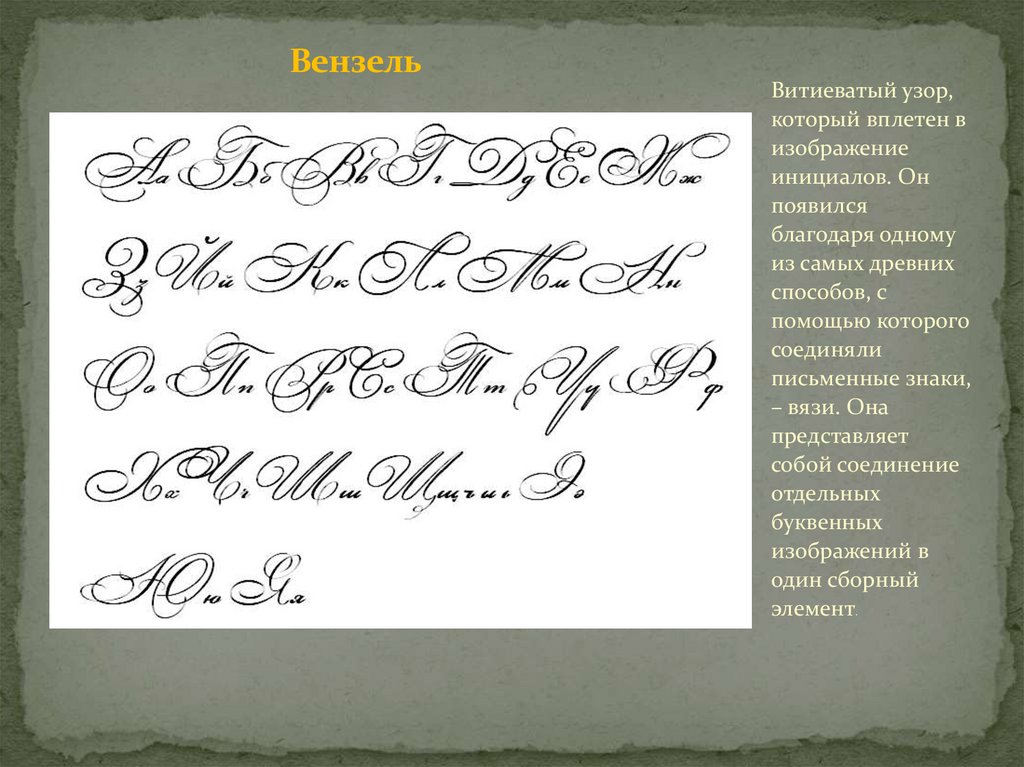 Вензель
Аа Бб Вв Гг Дд Ее Жж
Зз Йй Кк Лл Мм Нн
Оо Пп Рр Сс Тт Уу Фф
Хх Чч Шш Щщ ъ ы ь Ээ
Юю Яя
Витиеватый узор,
который вплетен в
изображение
инициалов. Он
появился
благодаря одному
из самых древних
способов, с
помощью которого
соединяли
письменные знаки,
– вязи. Она
представляет
собой соединение
отдельных
буквенных
изображений в
один сборный
элемент.